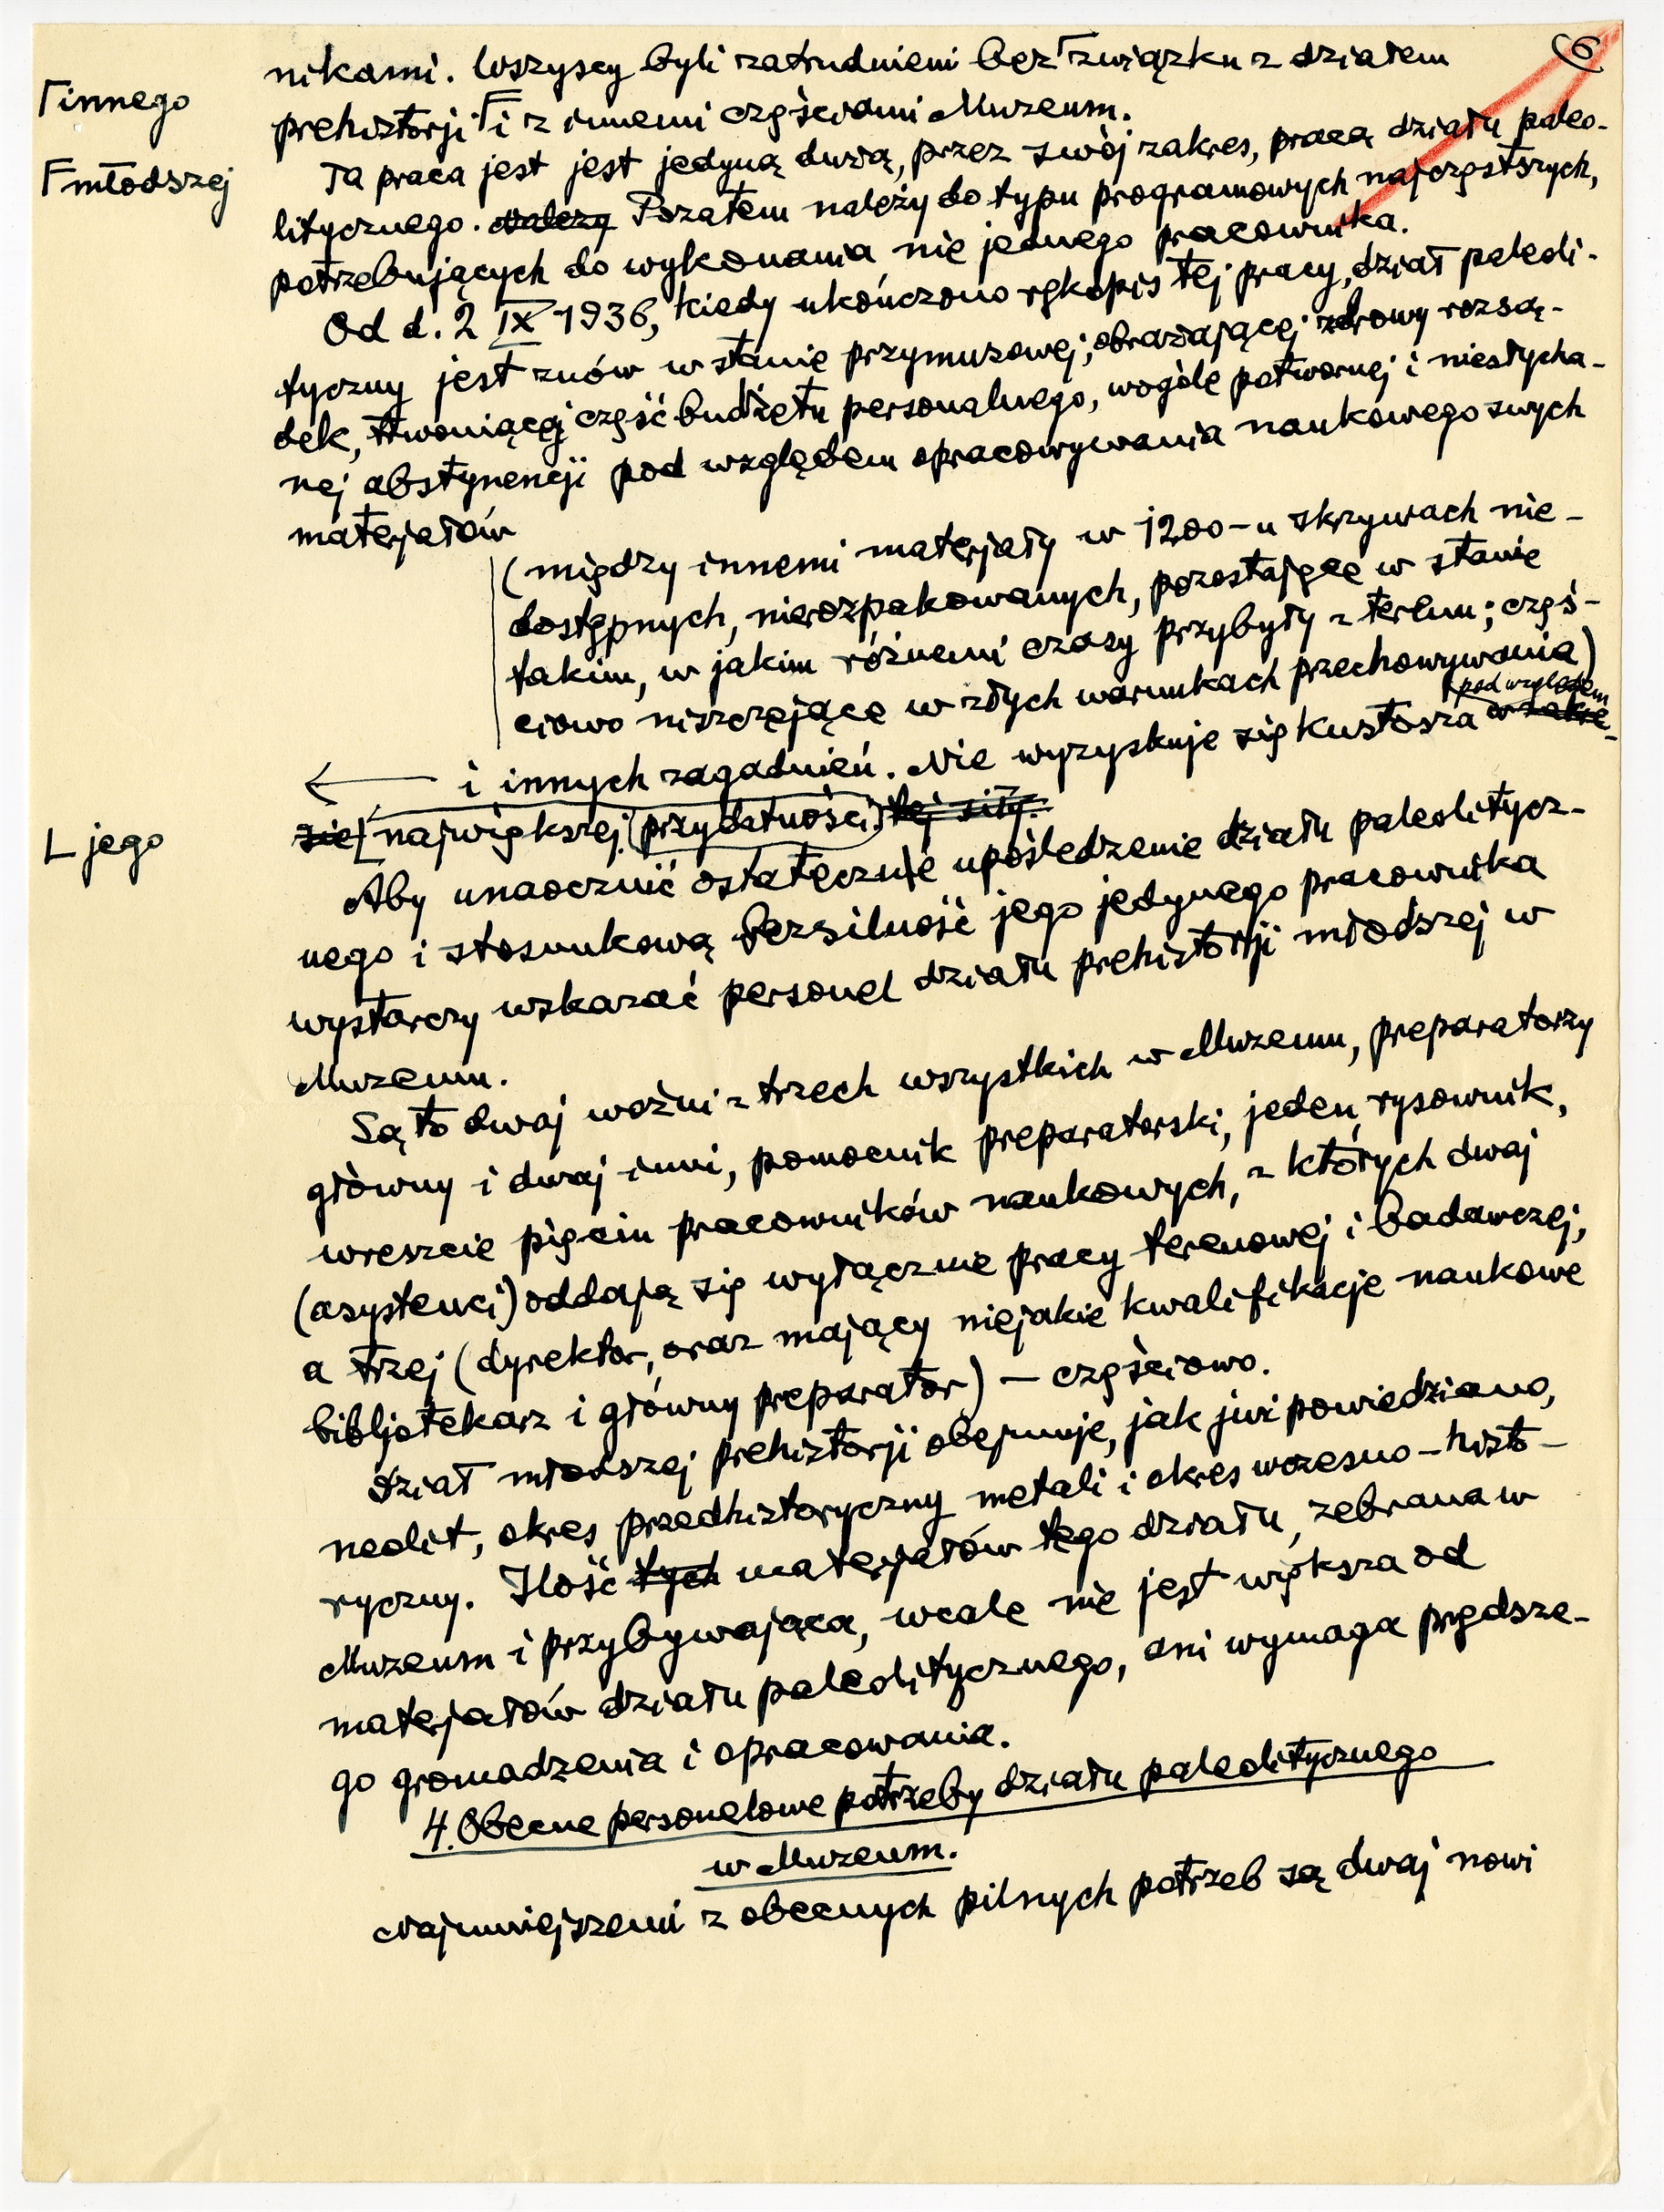 6
nikami. Wszyscy byli zatrudnieni bez Γzwiązku z działem
Γinnego
prehistorji Fi z innemi częściami Muzeum.
Fmłodszej
Ta praca jest jest jedyną dużą, przez swój zakres, pracą działu paleo-
litycznego. należy Pozatem należy do typu programowych najczęstszych,
potrzebujących do wykonania nie jednego pracownika.
Od d. 2 IX 1936, kiedy ukończono rękopis tej pracy, dział paleoli-
tyczny jest znów w stanie przymusowej, obrażającej zdrowy rozsą-
dek, trwoniącej część budżetu personalnego, wogóle potwornej i niesłycha-
nej abstynencji pod względem opracowywania naukowego swych
materjałów
(między innemi materjały w 1200-u skrzywach nie-
dostępnych, nierozpakowanych, pozostające w stanie
takim, w jakim różnemi czasy przybyły z terenu; częś-
ciowo niszczejące w złych warunkach przechowywania)
← i innych zagadnień. Nie wyzyskuje się kustosza w zakre-
pod względem
sie [największej (przydatności) tej siły.
L jego
Aby unaocznić ostatecznie upośledzenie działu paleolitycz-
nego i stosunkową bezsilność jego jedynego pracownika
wystarczy wskazać personel działu prehistorji młodszej w
Muzeum.
Są to dwaj woźni z trzech wszystkich w Muzeum, preparatorzy
główny i dwaj inni, pomocnik preparatorski, jeden rysownik,
wreszcie pięciu pracowników naukowych, z których dwaj
(asystenci) oddają się wyłącznie pracy terenowej i badawczej,
a trzej (dyrektor, oraz mający niejakie kwalifikacje naukowe
bibljotekarz i główny preparator) – częściowo.
Dział młodszej prehistorji obejmuje, jak już powiedziano,
neolit, okres przedhistoryczny metali i okres wczesno-histo-
ryczny. Ilość tych materjałów tego działu, zebrana w
Muzeum i przybywająca, wcale nie jest większa od
materjałów działu paleolitycznego, ani wymaga prędsze-
go gromadzenia i opracowania.
4. Obecne personelowe potrzeby działu paleolitycznego
w Muzeum.
Najmniejszemi z obecnych pilnych potrzeb są dwaj nowi